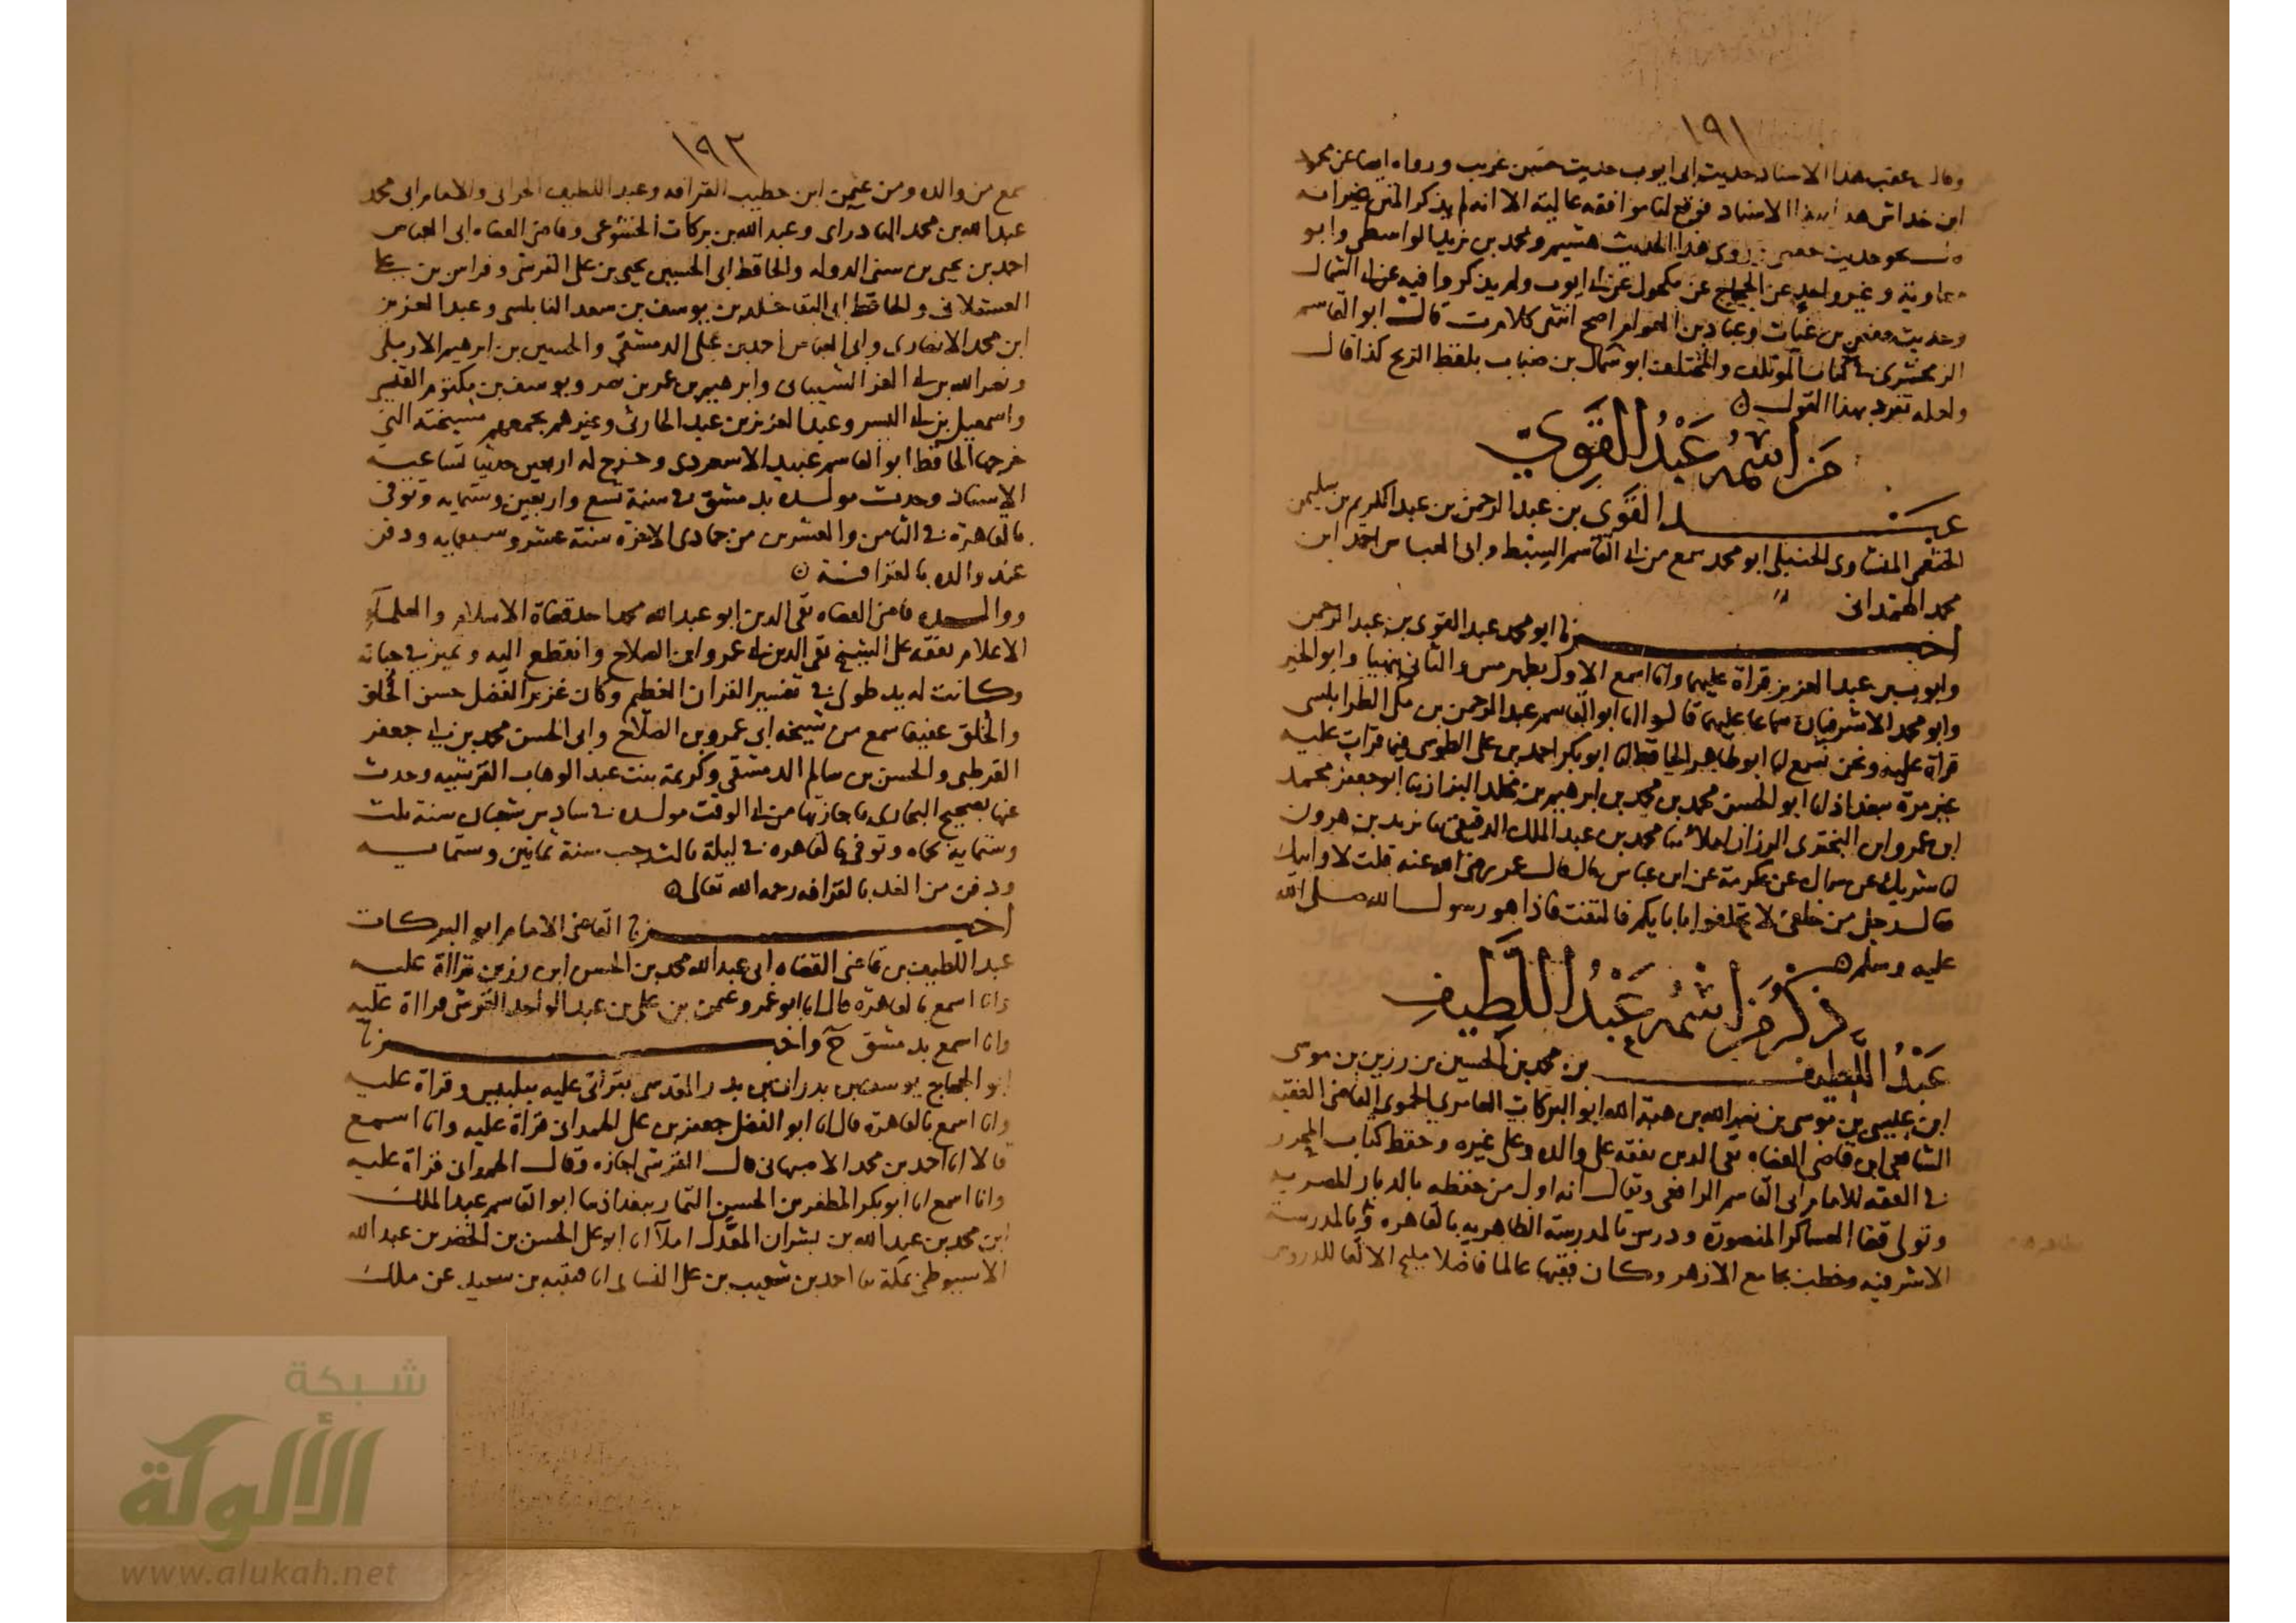 ١٩١
وقال عقب هذا الاسناد حديث ابى ايوب حديث حسن غريب ورواه ايضا عن محمود
ابن خداش هذا الاسناد فوقع لنا موافقة عالية الا انه لم يذكر المتن غير انه
نحو حديث حفص روى هذا الحديث هشيم ومحمد بن يزيد الواسطى وابو
معاوية وغير واحد عن الحجاج عن مكحول عن ابى ايوب ولم يذكروا فيه عن ابى الشمال
وحديث حفص بن غياث وعباد بن العوام اصح انتهى كلام ت قال ابو القاسم
الزمخشرى فى كتاب المؤتلف والمختلف ابو شمال بن ضباب بلفظ الريح كذا قال
ولعله تفرد بهذا القول
من اسمه عبد القوي
عبد القوى بن عبد الرحمن بن عبد الكريم بن سليمن
الخثعمى الحنبلى ابو محمد سمع من ابى القاسم السبط وابى العباس احمد ابن
محمد الهمدانى
اخبرنا ابو محمد عبد القوى بن عبد الرحمن
وابو عبد العزيز قراة عليهما وانا اسمع الاول والثانى وابو الخير
وابو محمد الاشرفيان سماعا عليهما قالوا انا ابو القاسم عبد الرحمن بن مكى الطرابلسى
قراة عليه ونحن نسمع انا ابو طاهر الحافظ انا ابو بكر احمد بن على الطوسى فيما قرات عليه
غير مرة ببغداذ انا ابو الحسن محمد بن محمد بن ابرهيم بن مخلد البزاز ثنا ابو جعفر محمد
ابن عمرو ابن البخترى الرزاز املاء ثنا محمد بن عبد الملك الدقيقى ثنا يزيد بن هرون
انا شريك عن سماك عن عكرمة عن ابن عباس قال قال عمر رضى الله عنه قلت لا وابيك
فقال رجل من خلفى لا تحلفوا بابايكم فالتفت فاذا هو رسول الله صلى الله
عليه وسلم
ذكر من اسمه عبد اللطيف
عبد اللطيف بن محمد بن الحسين بن رزين بن موسى
ابن عيسى بن موسى بن نصر الله بن هبة الله ابو البركات العامرى الحموى القاضى الفقيه
الشافعى ابن قاضى القضاه تقى الدين تفقه على والده وعلى غيره وحفظ كتاب المحرر
فى الفقه للامام ابى القاسم الرافعى ويقال انه اول من حفظه بالديار المصريه
وتولى قضا العساكر المنصورة ودرس بالمدرسة الظاهريه بالقاهره وبالمدرسة
الاشرفيه وخطب بجامع الازهر وكان فقيها عالما فاضلا مليح الالقا للدروس
١٩٢
سمع من والده ومن عثمن ابن خطيب القرافه وعبد اللطيف الحرانى والامام ابى محمد
عبد الله بن محمد البادراى وعبد الله بن بركات الخشوعى وقاضى القضاه ابى العباس
احمد بن يحيى بن سنى الدوله والحافظ ابى الحسين يحيى بن على القرشى وفراس بن على
العسقلانى والحافظ ابى البقا خلد بن يوسف بن سعد النابلسى وعبد العزيز
ابن محمد الانصارى وابى العباس احمد بن على الدمشقى والحسين بن ابرهيم الاربلى
ونصر الله بن ابى العز الشيبانى وابرهيم بن عمر بن مضر ويوسف بن مكتوم القيسى
واسمعيل بن ابى اليسر وعبد العزيز بن عبد الحارثى وغيرهم يجمعهم مشيخته التى
خرجها الحافظ ابو القاسم عبيد الاسعردى وخرج له اربعين حديثا تساعية
الاسناد وحدث مولده بدمشق فى سنة تسع واربعين وستمايه وتوفى
بالقاهرة فى الثامن والعشرين من جمادى الاخرة سنة عشر وسبعمايه ودفن
عند والده بالقرافة
ووالده قاضى القضاه تقى الدين ابو عبد الله محمد احد قضاة الاسلام والعلماء
الاعلام تفقه على الشيخ تقى الدين ابى عمرو ابن الصلاح وانقطع اليه وتميز فى حياته
وكانت له يد طولى فى تفسير القران العظيم وكان غزير الفضل حسن الخلق
والخلق عفيفا سمع من شيخه ابى عمرو بن الصلاح وابى الحسن محمد بن ابى جعفر
القرطبى والحسن بن سالم الدمشقى وكريمة بنت عبد الوهاب القرشيه وحدث
عنها بصحيح البخارى باجازتها من ابى الوقت مولده فى سادس شعبان سنة ثلث
وستمايه بحماه وتوفى بالقاهره فى ليلة ثالث رجب سنة ثمانين وستمايه
ودفن من الغد بالقرافه رحمه الله تعالى
اخبرنا القاضى الامام ابو البركات
عبد اللطيف بن قاضى القضاه ابى عبد الله محمد بن الحسن ابن رزين قراة عليه
وانا اسمع بالقاهرة قال انا ابو عمرو عثمن بن على بن عبد الواحد القرشى قراة عليه
وانا اسمع بدمشق ح واخبرنا
ابو الحجاج يوسف بن بدران بن بدر المقدسى بقراتى عليه ببلبيس وقراة عليه
وانا اسمع بالقاهرة قال انا ابو الفضل جعفر بن على الهمدانى قراة عليه وانا اسمع
قالا انا احمد بن محمد الاصبهانى قال القرشى اجازه وقال الهمدانى قراة عليه
وانا اسمع انا ابو بكر المظفر بن الحسين التمار ببغداذ ثنا ابو القاسم عبد الملك
ابن محمد بن عبد الله بن بشران المعدل املاء انا ابو على الحسن بن الخضر بن عبد الله
الاسيوطى بمكة ثنا احمد بن شعيب بن على النسائى انا قتيبه بن سعيد عن ملك
شبكة
الألوكة
www.alukah.net